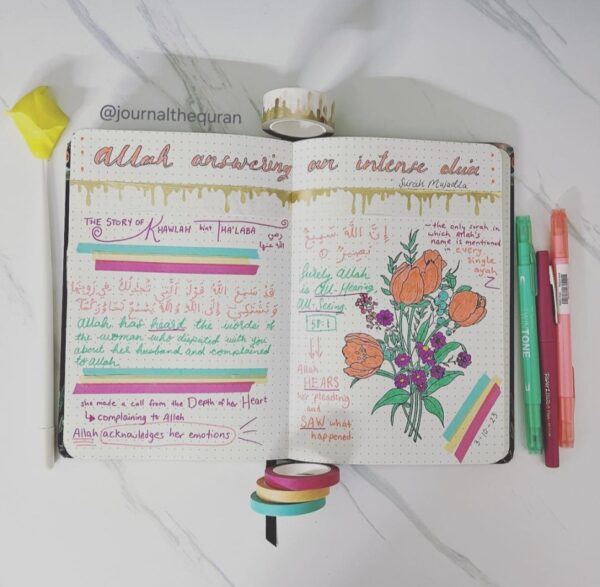 @journalthequran
Allah answering an intense dua
Surah Mujadila
THE STORY OF KHAWLAH bint THA'LABA
رضي
الله عنها
قَدْ سَمِعَ اللَّهُ قَوْلَ الَّتِي تُجَٰدِلُكَ فِي زَوْجِهَا
وَتَشْتَكِي إِلَى اللَّهِ وَاللَّهُ يَسْمَعُ تَحَاوُرَكُمَا
Allah has heard the words of
the woman who disputed with you
about her husband and complained
to Allah
she made a call from the Depth of her Heart
complaining to Allah
Allah acknowledges her emotions
إِنَّ اللَّهَ سَمِيعٌ
بَصِيرٌ
Surely Allah
is All-Hearing,
All-Seeing.
58:1
Allah
HEARS
her pleading
and
SAW what
happened.
- the only surah in
which Allah's
name is mentioned
in every
single
ayah
3-10-23
TONE